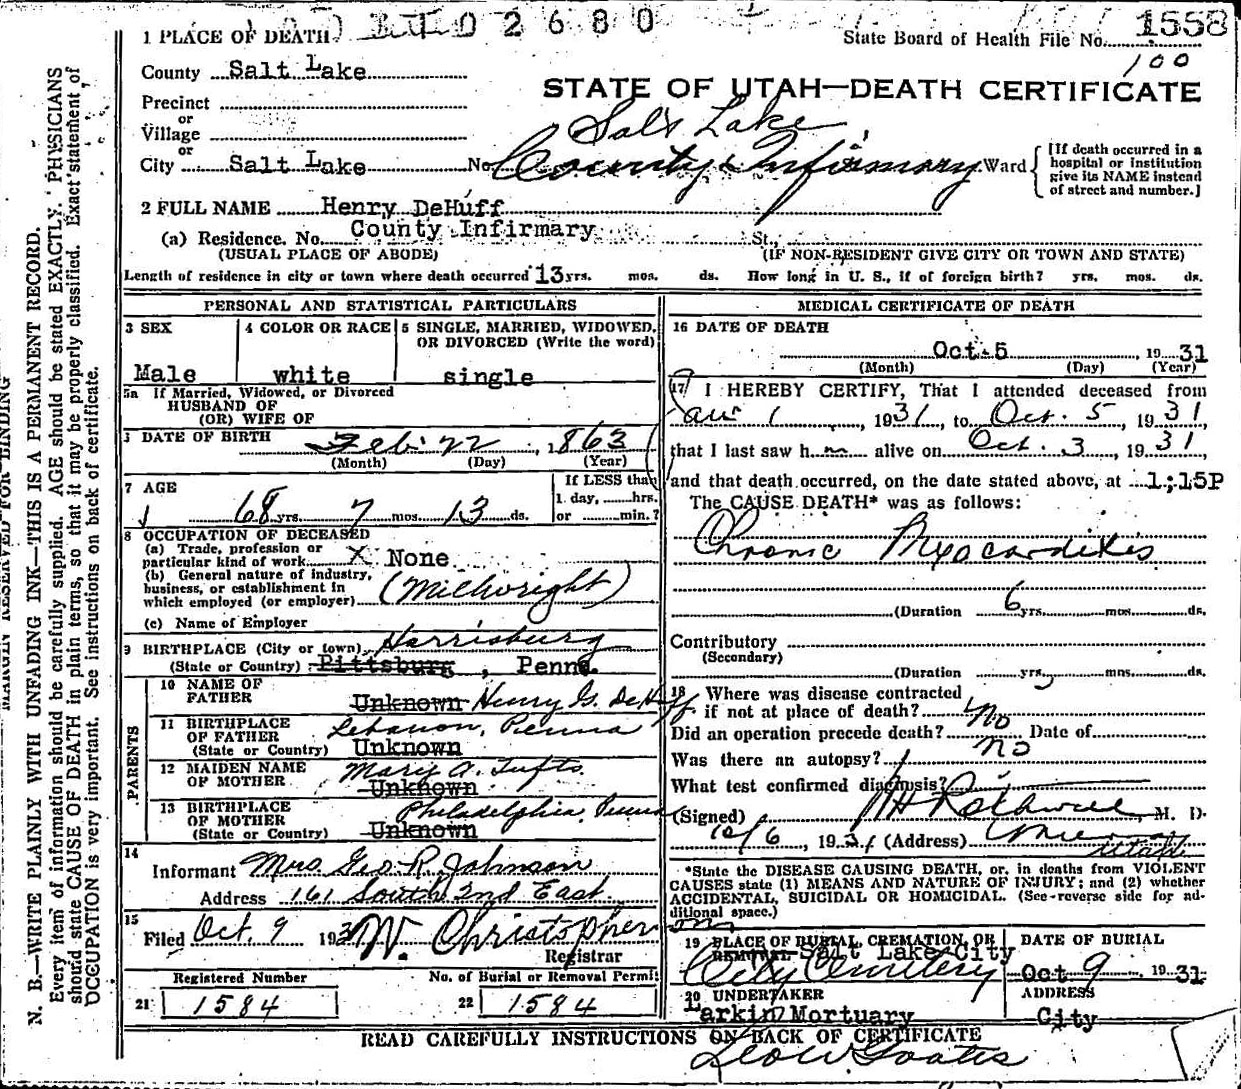 02680
1558
1 PLACE OF DEATH
State Board of Health File No.
100
County Salt Lake
STATE OF UTAH—DEATH CERTIFICATE
Precinct
or
Village
Salt Lake
or
City Salt Lake No. County Infirmary Ward
[If death occurred in a hospital or institution give its NAME instead of street and number.]
2 FULL NAME Henry DeHuff
(a) Residence. No. County Infirmary St.,
(USUAL PLACE OF ABODE) (IF NON-RESIDENT GIVE CITY OR TOWN AND STATE)
Length of residence in city or town where death occurred 13 yrs. mos. ds. How long in U. S., if of foreign birth? yrs. mos. ds.
PERSONAL AND STATISTICAL PARTICULARS
3 SEX
Male
4 COLOR OR RACE
white
5 SINGLE, MARRIED, WIDOWED, OR DIVORCED (Write the word)
single
5a If Married, Widowed, or Divorced
HUSBAND OF
(OR) WIFE OF
DATE OF BIRTH Feb. 22, 1863
(Month) (Day) (Year)
7 AGE
68 yrs. 7 mos. 13 ds.
If LESS than
1 day, hrs.
or min.?
8 OCCUPATION OF DECEASED
(a) Trade, profession or
particular kind of work X None
(b) General nature of industry,
business, or establishment in
which employed (or employer) (Millwright)
(c) Name of Employer
Harrisburg
9 BIRTHPLACE (City or town)
(State or Country) Pittsburg, Penna.
PARENTS
10 NAME OF
FATHER Unknown Henry G. DeHuff
11 BIRTHPLACE
OF FATHER Lebanon, Penna
(State or Country) Unknown
12 MAIDEN NAME
OF MOTHER Mary A. Tufts
Unknown
13 BIRTHPLACE
OF MOTHER Philadelphia, Penna
(State or Country) Unknown
14
Informant Mrs. Geo. R. Johnson
Address 161 South 2nd East
15
Filed Oct. 9 1931 W. Christopher
Registrar
Registered Number
21 1584
No. of Burial or Removal Permit
22 1584
MEDICAL CERTIFICATE OF DEATH
16 DATE OF DEATH
Oct. 5, 1931
(Month) (Day) (Year)
17 I HEREBY CERTIFY, That I attended deceased from
1, 1931, to Oct. 5, 1931,
that I last saw h m alive on Oct. 3, 1931,
and that death occurred, on the date stated above, at 1:15P
The CAUSE DEATH* was as follows:
Chronic Myocarditis
(Duration 6 yrs. mos. ds.
Contributory
(Secondary)
(Duration yrs. mos. ds.
18 Where was disease contracted
if not at place of death?
Did an operation precede death? No Date of
Was there an autopsy? No
What test confirmed diagnosis?
(Signed) Rothwell, M. D.
10/6, 1931 (Address)
Utah
*State the DISEASE CAUSING DEATH, or, in deaths from VIOLENT
CAUSES state (1) MEANS AND NATURE OF INJURY; and (2) whether
ACCIDENTAL, SUICIDAL OR HOMICIDAL. (See reverse side for ad-
ditional space.)
19 PLACE OF BURIAL, CREMATION, OR
REMOVAL Salt Lake City
City Cemetery
DATE OF BURIAL
Oct 9, 1931
20 UNDERTAKER
Larkin Mortuary
ADDRESS
City
READ CAREFULLY INSTRUCTIONS ON BACK OF CERTIFICATE
MARGIN RESERVED FOR BINDING
N. B.—WRITE PLAINLY WITH UNFADING INK—THIS IS A PERMANENT RECORD.
Every item of information should be carefully supplied. AGE should be stated EXACTLY. PHYSICIANS
should state CAUSE OF DEATH in plain terms, so that it may be properly classified. Exact statement of
OCCUPATION is very important. See instructions on back of certificate.